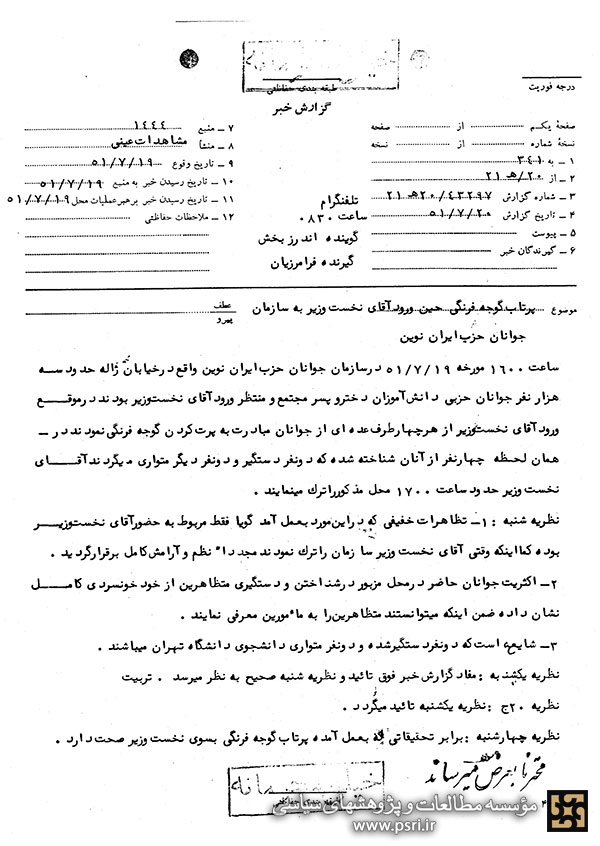 خیلی محرمانه
طبقه بندی حفاظتی
درجه فوریت
گزارش خبر
صفحهٔ یکم از صفحه
نسخهٔ شماره از نسخه
۱ ـ به ۳۴۱
۲ ـ از ۲۰/هـ ۲۱
۳ ـ شماره گزارش ۲۰/۴۳۲۹۷هـ ۲۱
۴ ـ تاریخ گزارش ۵۱/۷/۲۰
۵ ـ پیوست
۶ ـ گیرندگان خبر
تلفنگرام
ساعت ۰۸۳۰
گوینده اندرزبخش
گیرنده فرامرزیان
۷ ـ منبع ۱۴۴۴
۸ ـ منشأ مشاهدات عینی
۹ ـ تاریخ وقوع ۵۱/۷/۱۹
۱۰ ـ تاریخ رسیدن خبر به منبع ۵۱/۷/۱۹
۱۱ ـ تاریخ رسیدن خبر برهبر عملیات محل ۵۱/۷/۱۹
۱۲ ـ ملاحظات حفاظتی
موضوع پرتاب گوجه فرنگی حین ورود آقای نخست وزیر به سازمان
جوانان حزب ایران نوین
عطف
پیرو
ساعت ۱۶۰۰ مورخه ۵۱/۷/۱۹ در سازمان جوانان حزب ایران نوین واقع در خیابان ژاله حدود سه
هزار نفر جوانان حزبی دانش آموزان دختر و پسر مجتمع و منتظر ورود آقای نخست وزیر بودند در موقع
ورود آقای نخست وزیر از هر چهار طرف عده ای از جوانان مبادرت به پرت کردن گوجه فرنگی نمودند در ـ
همان لحظه چهار نفر از آنان شناخته شده که دو نفر دستگیر و دو نفر دیگر متواری میگردند آقای
نخست وزیر حدود ساعت ۱۷۰۰ محل مذکور را ترک مینمایند .
نظریه شنبه : ۱ـ تظاهرات خفیفی که در این مورد بعمل آمد گویا فقط مربوط به حضور آقای نخست وزیر
بوده کما اینکه وقتی آقای نخست وزیر سازمان را ترک نمودند مجددا" نظم و آرامش کامل برقرار گردید .
۲ـ اکثریت جوانان حاضر در محل مزبور در شناختن و دستگیری متظاهرین از خود خونسردی کامل
نشان داده ضمن اینکه میتوانستند متظاهرین را به مأمورین معرفی نمایند .
۳ـ شایع است که دو نفر دستگیر شده و دو نفر متواری دانشجوی دانشگاه تهران میباشند .
نظریه یکشنبه : مفاد گزارش خبر فوق تائید و نظریه شنبه صحیح به نظر میرسد . تربیت
نظریه ۲۰ج : نظریه یکشنبه تائید میگردد .
نظریه چهارشنبه : برابر تحقیقاتی که بعمل آمده پرتاب گوجه فرنگی بسوی نخست وزیر صحت دارد .
محترماً بعرض میرساند
خیلی محرمانه
طبقه بندی حفاظتی
مؤسسه مطالعات و پژوهشهای سیاسی
www.psri.ir